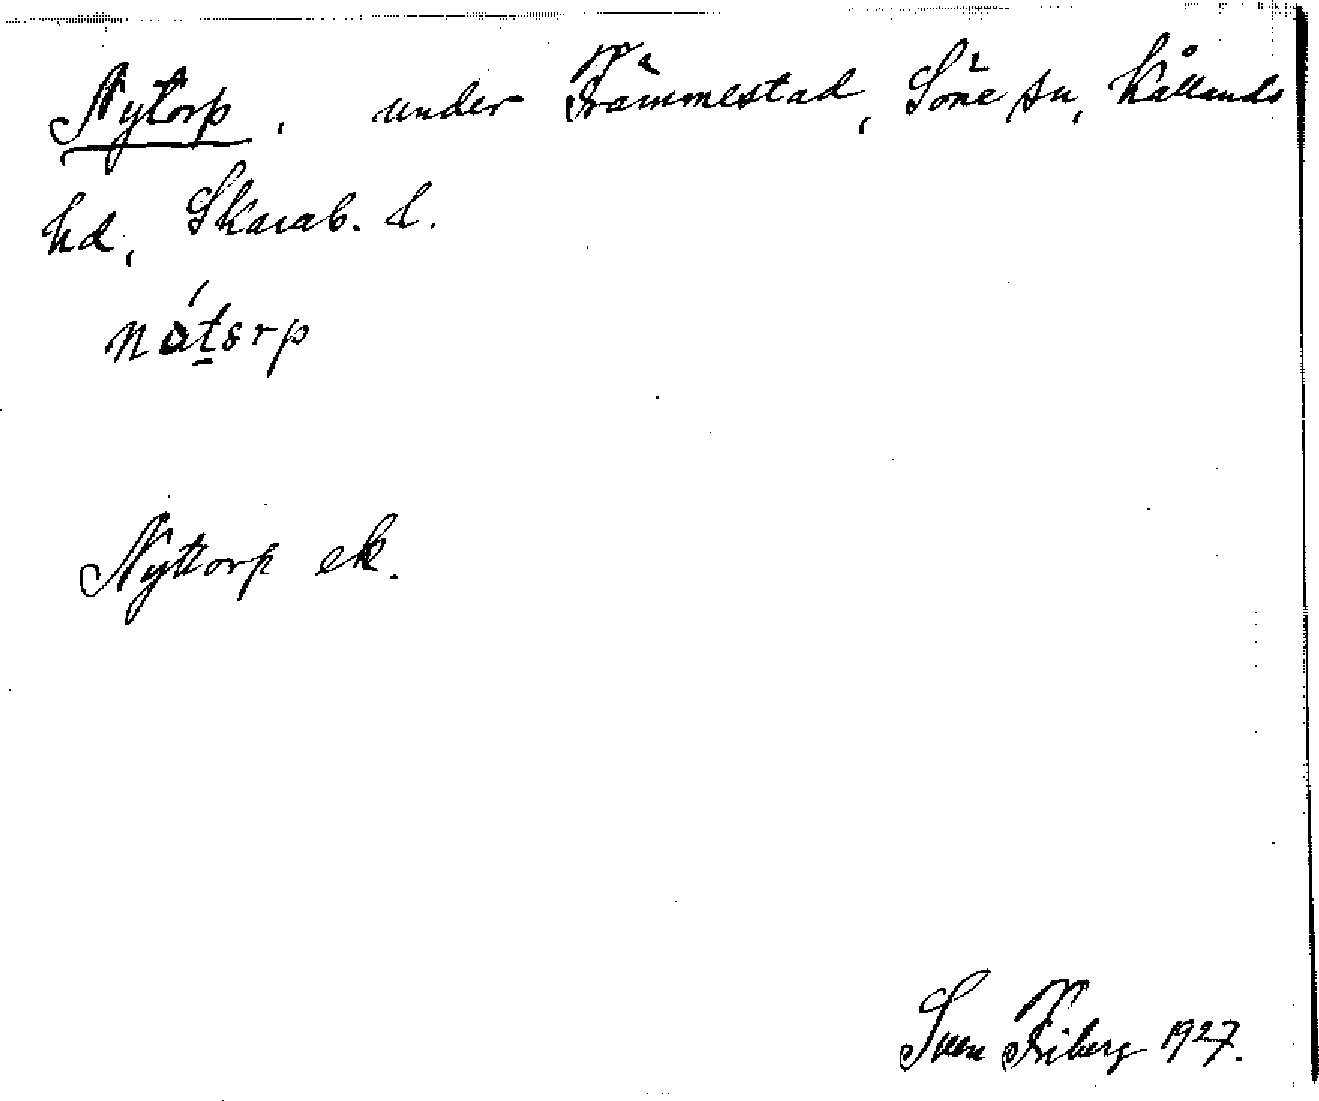 Nytorp, under Främmestad, Söne sn, Kållands
hd, Skarab. l.
Nyttorp ek.
Sven Friberg 1927.